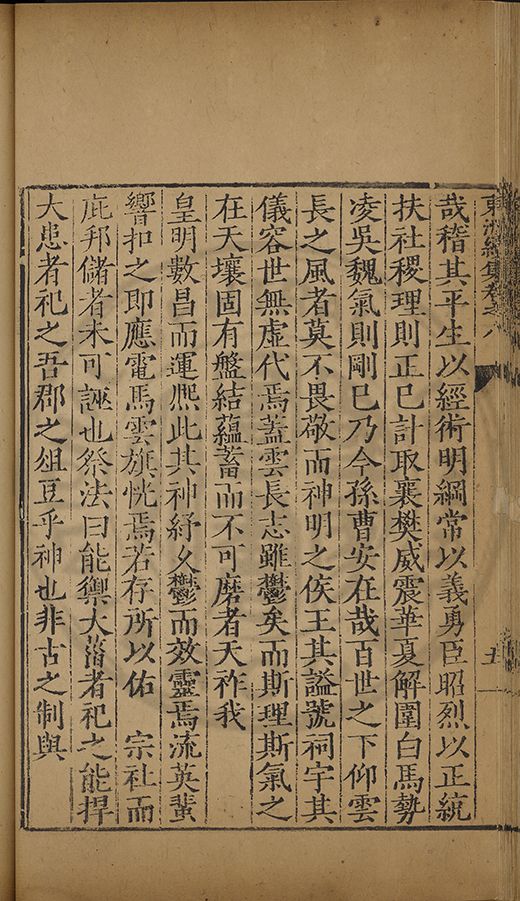 東洲續集卷之八
五
哉稽其平生以經術明綱常以義勇臣昭烈以正統
扶社稷理則正巳計取襄樊威震華夏解圍白馬勢
凌吳魏氣則剛巳乃今孫曹安在哉百世之下仰雲
長之風者莫不畏敬而神明之俟王其謚號祠宇其
儀容世無虛代焉蓋雲長志雖鬱矣而斯理斯氣之
在天壤固有盤結蘊蓄而不可磨者天祚我
皇明數昌而運熈此其神紓久鬱而效靈焉流英蜚
響扣之即應電馬雲旗恍焉若存所以佑　宗社而
庇邦儲者未可誣也祭法曰能禦大菑者祀之能捍
大患者祀之吾郡之俎豆乎神也非古之制與